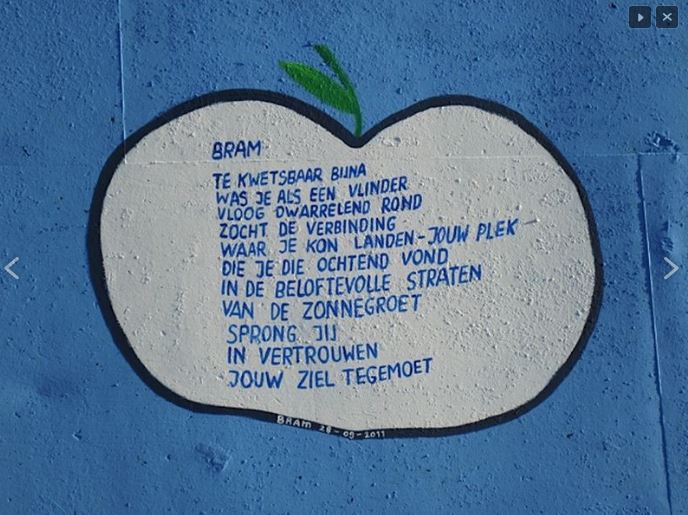 BRAM
TE KWETSBAAR BIJNA
WAS JE ALS EEN VLINDER
VLOOG DWARRELEND ROND
ZOCHT DE VERBINDING
WAAR JE KON LANDEN-JOUW PLEK
DIE JE DIE OCHTEND VOND
IN DE BELOFTEVOLLE STRATEN
VAN DE ZONNEGROET
SPRONG JIJ
IN VERTROUWEN
JOUW ZIEL TEGEMOET
BRAM 28-09-2011